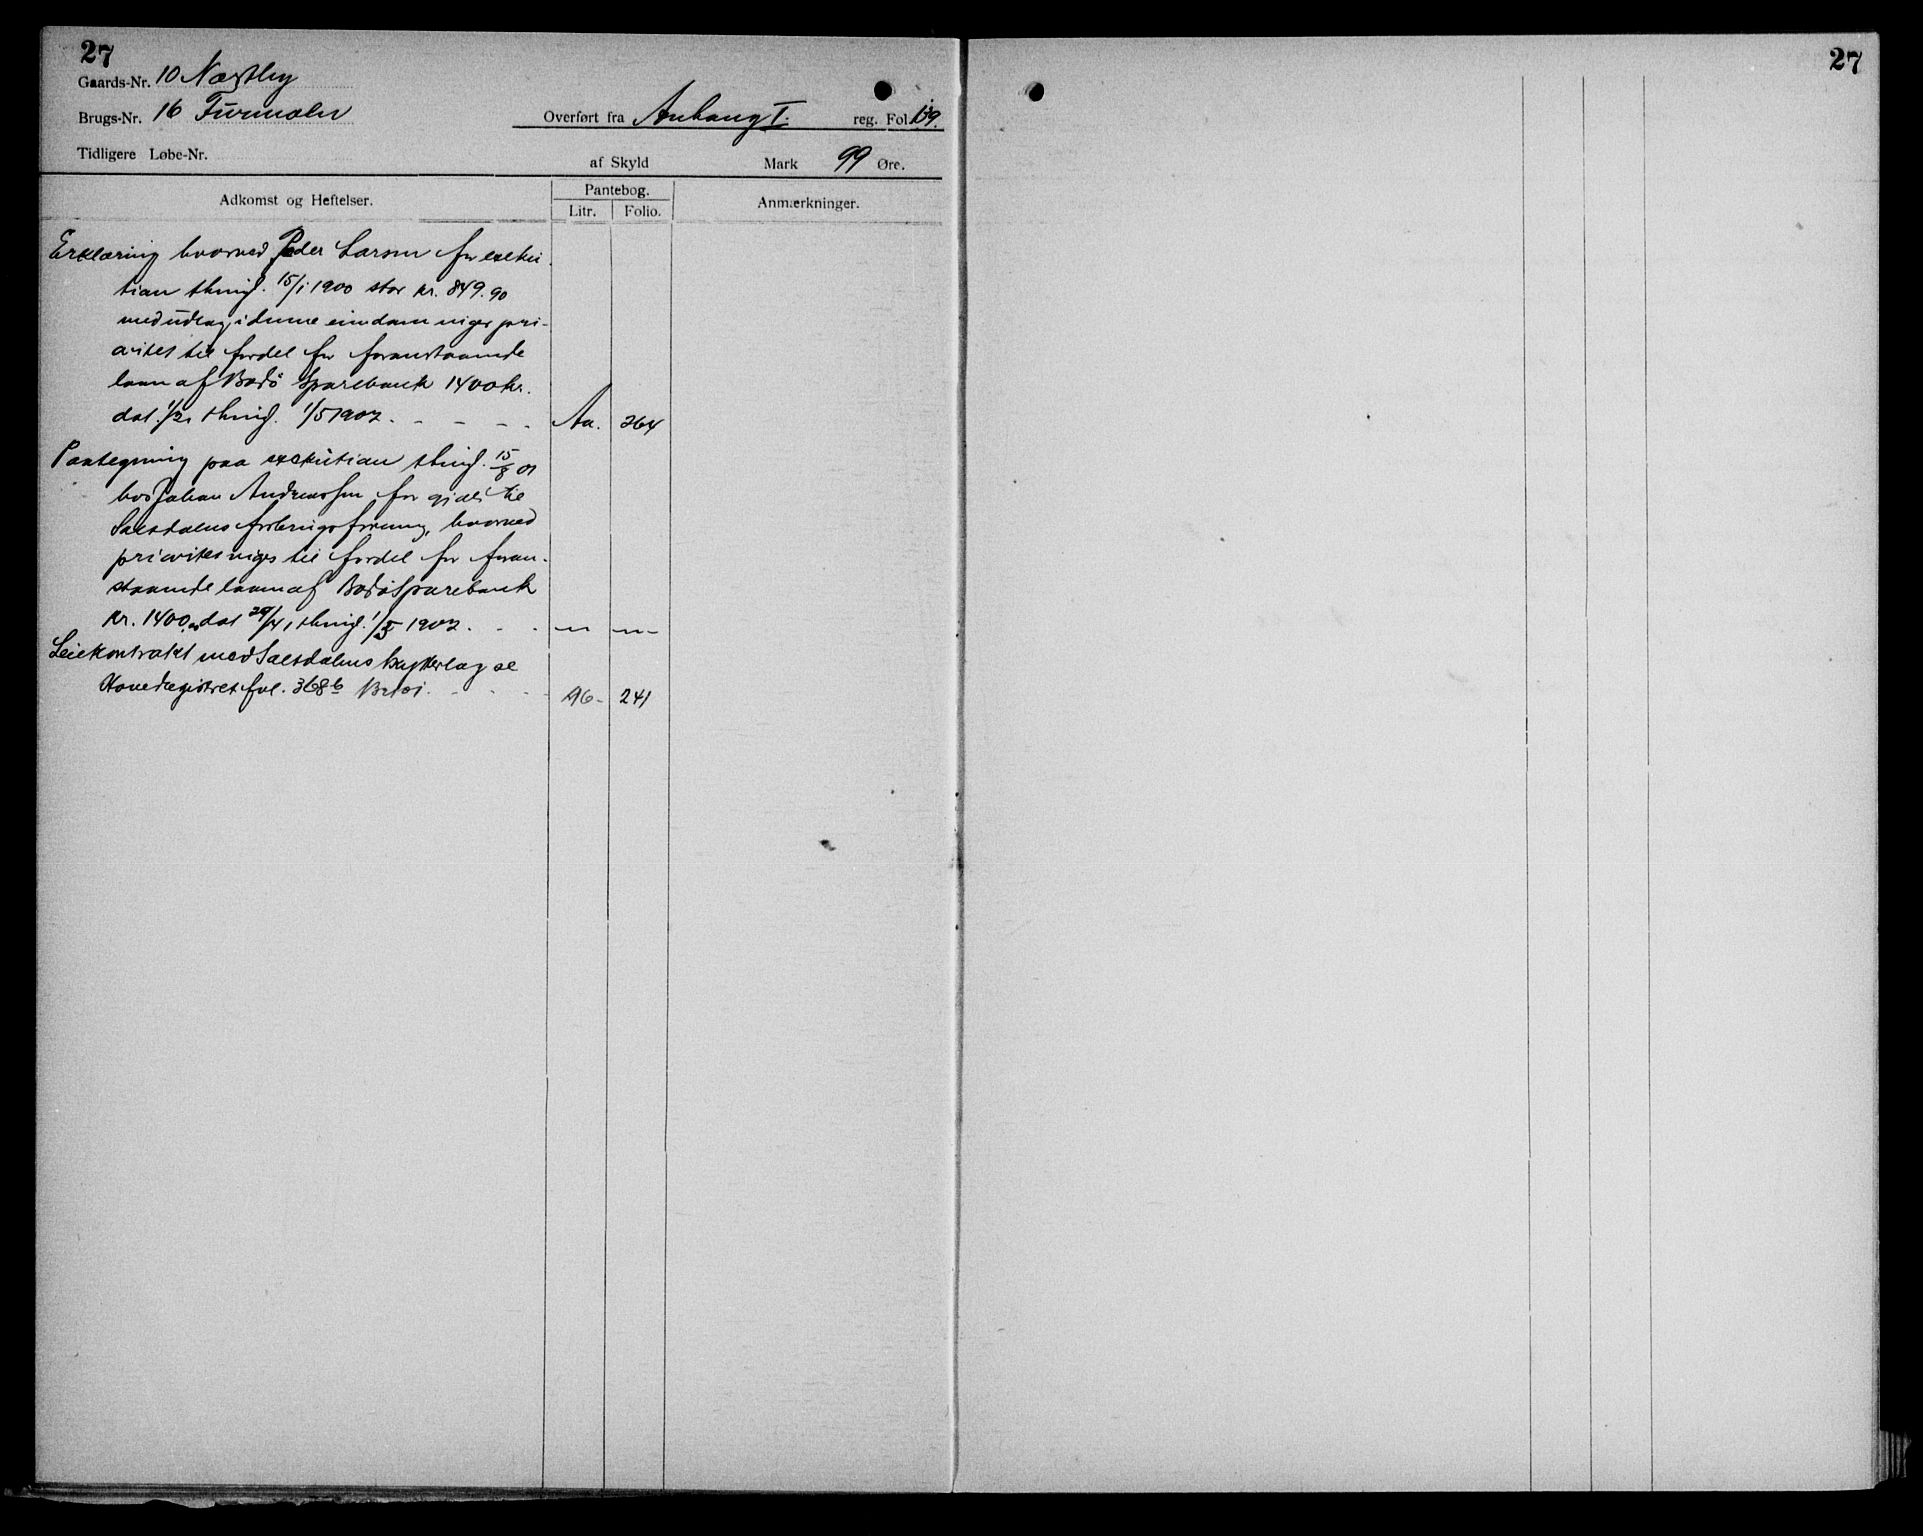 27
27
Gaards-Nr. 10 Næstby
Brugs-Nr. 16 Furumoln
Overført fra Anhang I. reg. Fol. 139.
Tidligere Løbe-Nr.
af Skyld Mark 99 Øre.
Adkomst og Heftelser.
Pantebog.
Litr. Folio.
Anmærkninger.
Erklæring hvorved Peder Larsen for exeku-
tion thingl. 15/1 1900 stor kr. 849.90
med udlæg i denne eiendom viger pri-
oritet til fordel for foranstaaende
laan af Bodö Sparebank 1400 kr.
dat. thingl. 1/5 1902. - - - - Aa. 264
Paategning paa exekution thingl. 15/8 01
hos Johan Andreassen for gjæld til
Saltdalens forbrugsforening, hvorved
prioritet viges til fordel for foran-
staaende laan af Bodö Sparebank
kr. 1400,00 dat 29/4, thingl. 1/5 1902. - - - — " — — " —
Leiekontrakt med Saltdalens bygderlag se
Hovedregistret fol. 368 b - - - 96 - 241